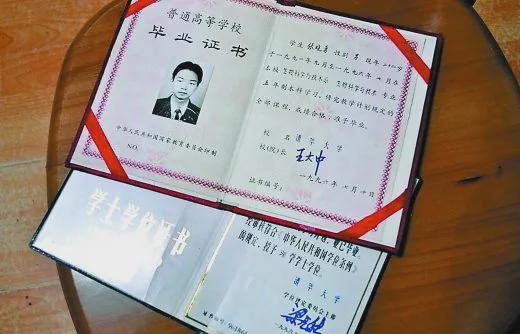 普通高等学校
毕业证书
中华人民共和国国家教育委员会印制
NO.
学生 性别 男 现年
于一九九一年九月至一九九六年七月在
本校 生物科学与技术系 生物科学与技术 专业
五年制本科学习,修完教学计划规定的
全部课程,成绩合格,准予毕业。
校名 清华大学
校(院)长 王大中
一九九六年七月 日
证书编号:
学士学位证书
的规定,授予 学学士学位。
清华大学
学位评定委员会主席
证书编号